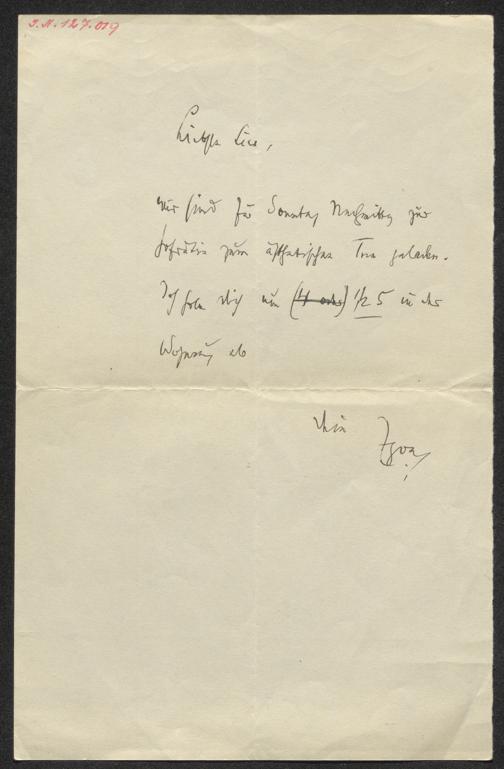 J.N. 127.019
Liebste Lice,
wir sind für Sonntag Nachmittag zur
Hofrätin zum ästhetischen Tee geladen.
Ich hole dich um (4 oder) 1/2 5 in der
Wohnung ab
Dein
Egon